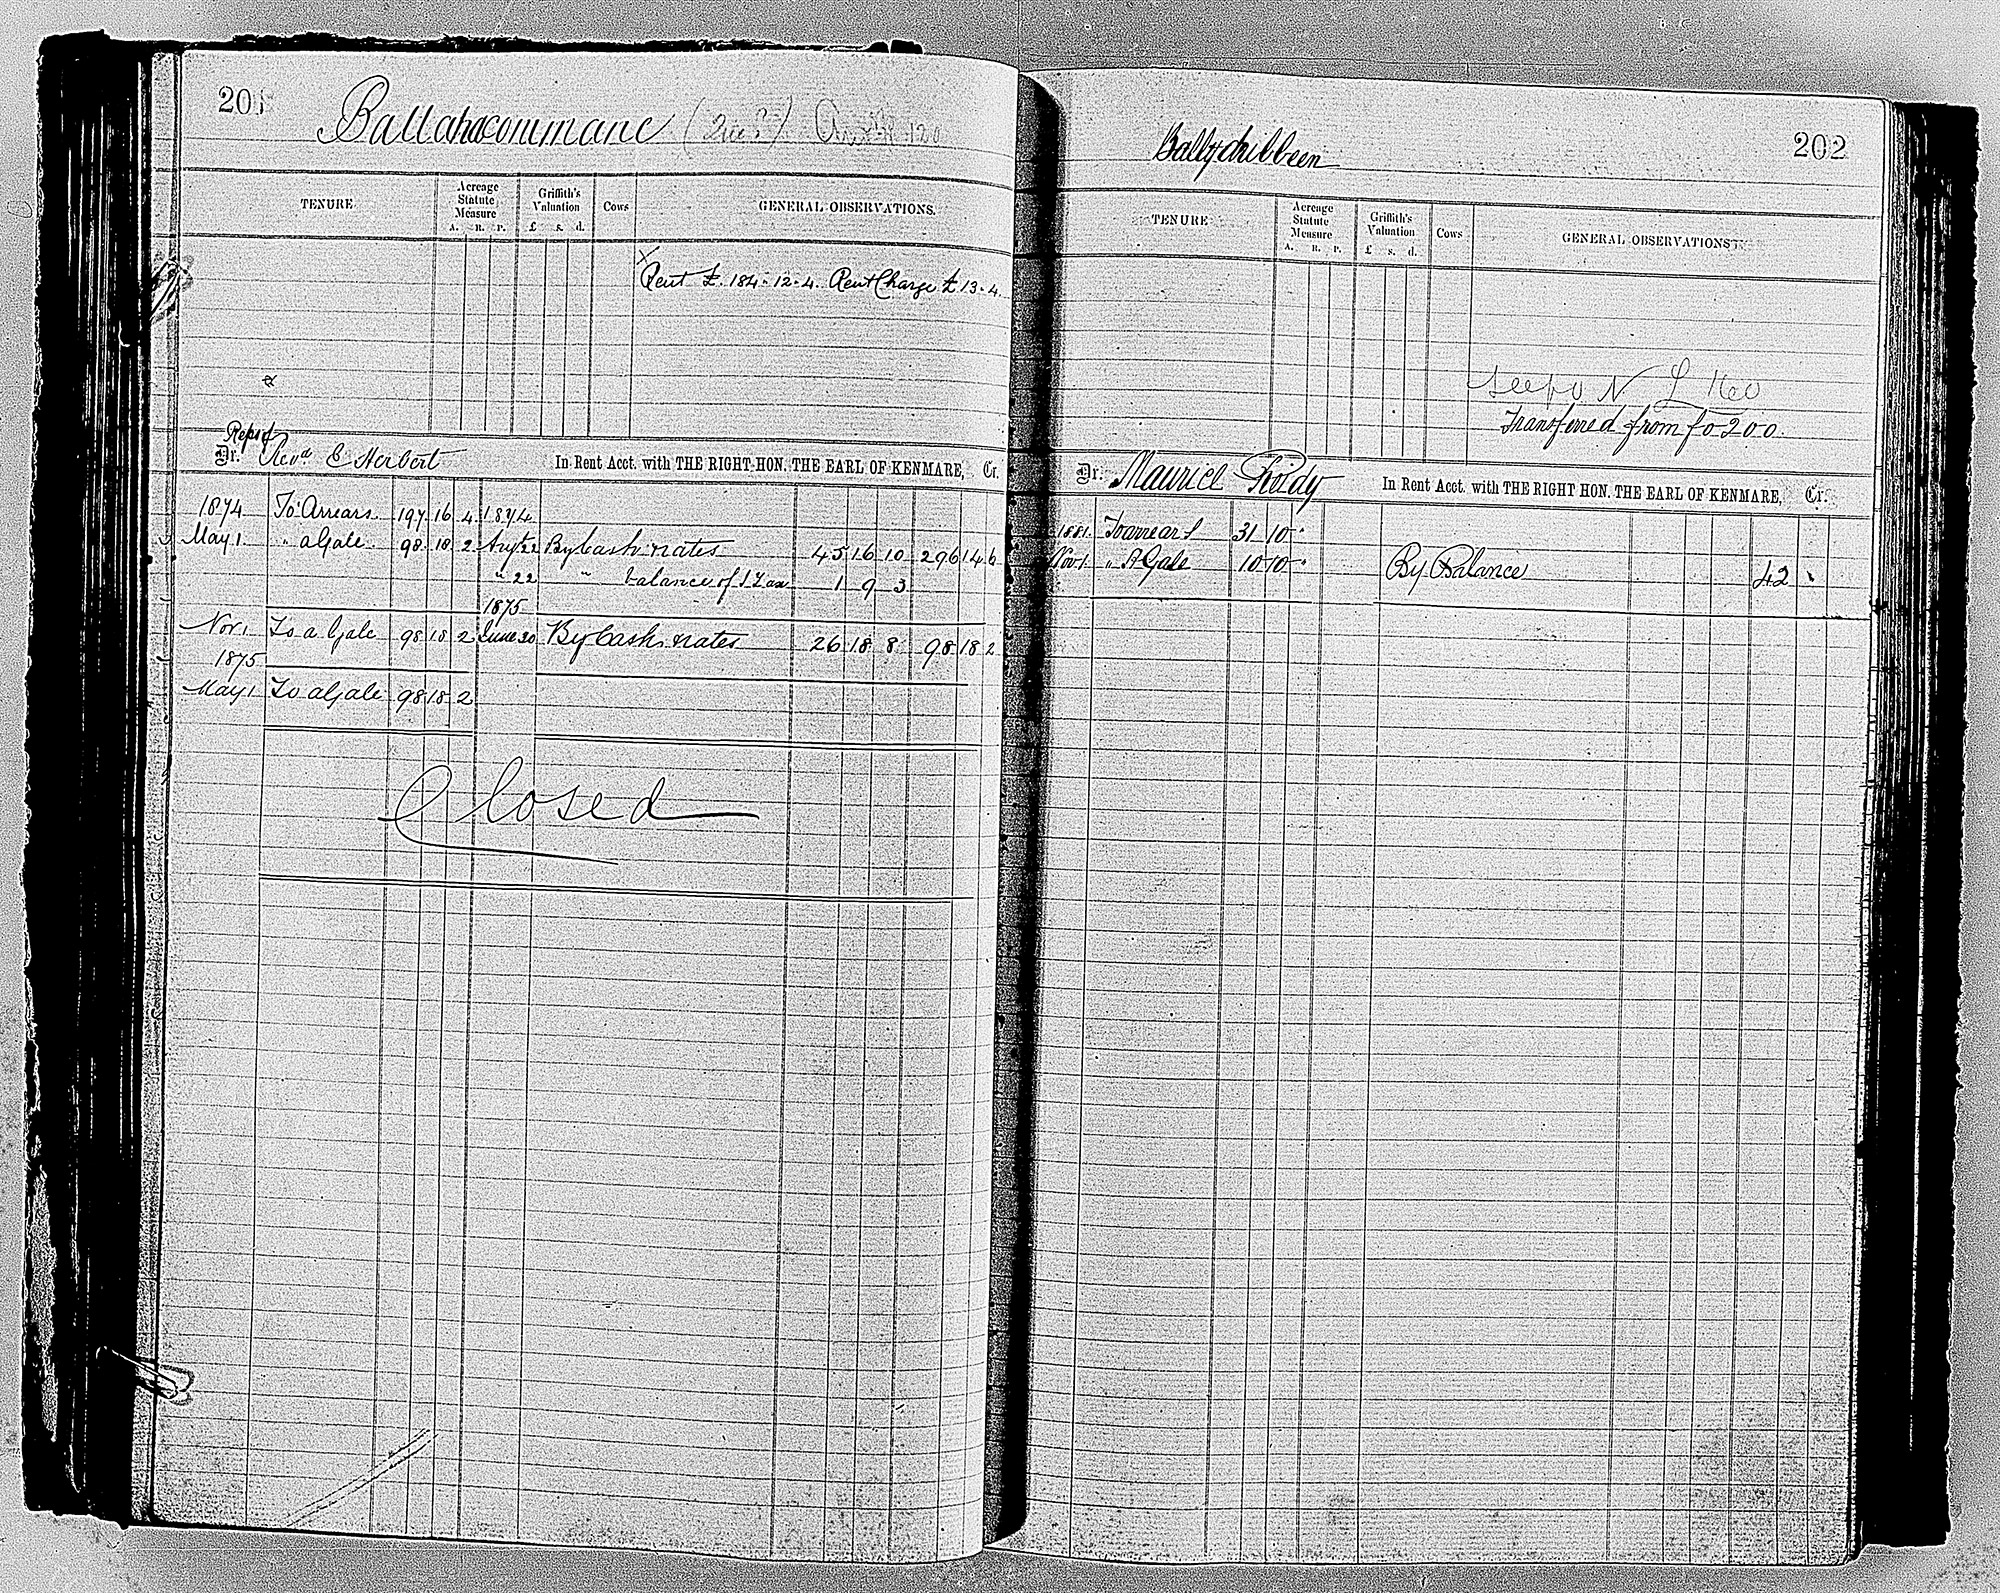 201
Ballahacommane
TENURE Acreage Statute Measure A. R. P. Griffith's Valuation £ s. d. Cows GENERAL OBSERVATIONS.
x
Rent £. 184-12-4. Rent Charge £13-4.
Reps of
Dr. Revd E Herbert In Rent Acct. with THE RIGHT HON. THE EARL OF KENMARE, Cr.
1874 To Arrears 197 16 4 1874
May 1. " a Gale 98 18 2 Augt 22 By Cash & rates 45 16 10 296 14 6
" 22 " balance of I Tax 1 9 3
1875
Nov 1 To a Gale 98 18 2 June 20 By Cash & rates 26 18 8 98 18 2
1875
May 1 To a Gale 98 18 2
Closed
202
Ballydribbeen
TENURE Acreage Statute Measure A. R. P. Griffith's Valuation £ s. d. Cows GENERAL OBSERVATIONS
Transferred from fo 200.
Dr. Maurice In Rent Acct. with THE RIGHT HON. THE EARL OF KENMARE, Cr.
1881. To arrears 31 10 "
Nov 1. " A Gale 10 10 " By Balance 42 "